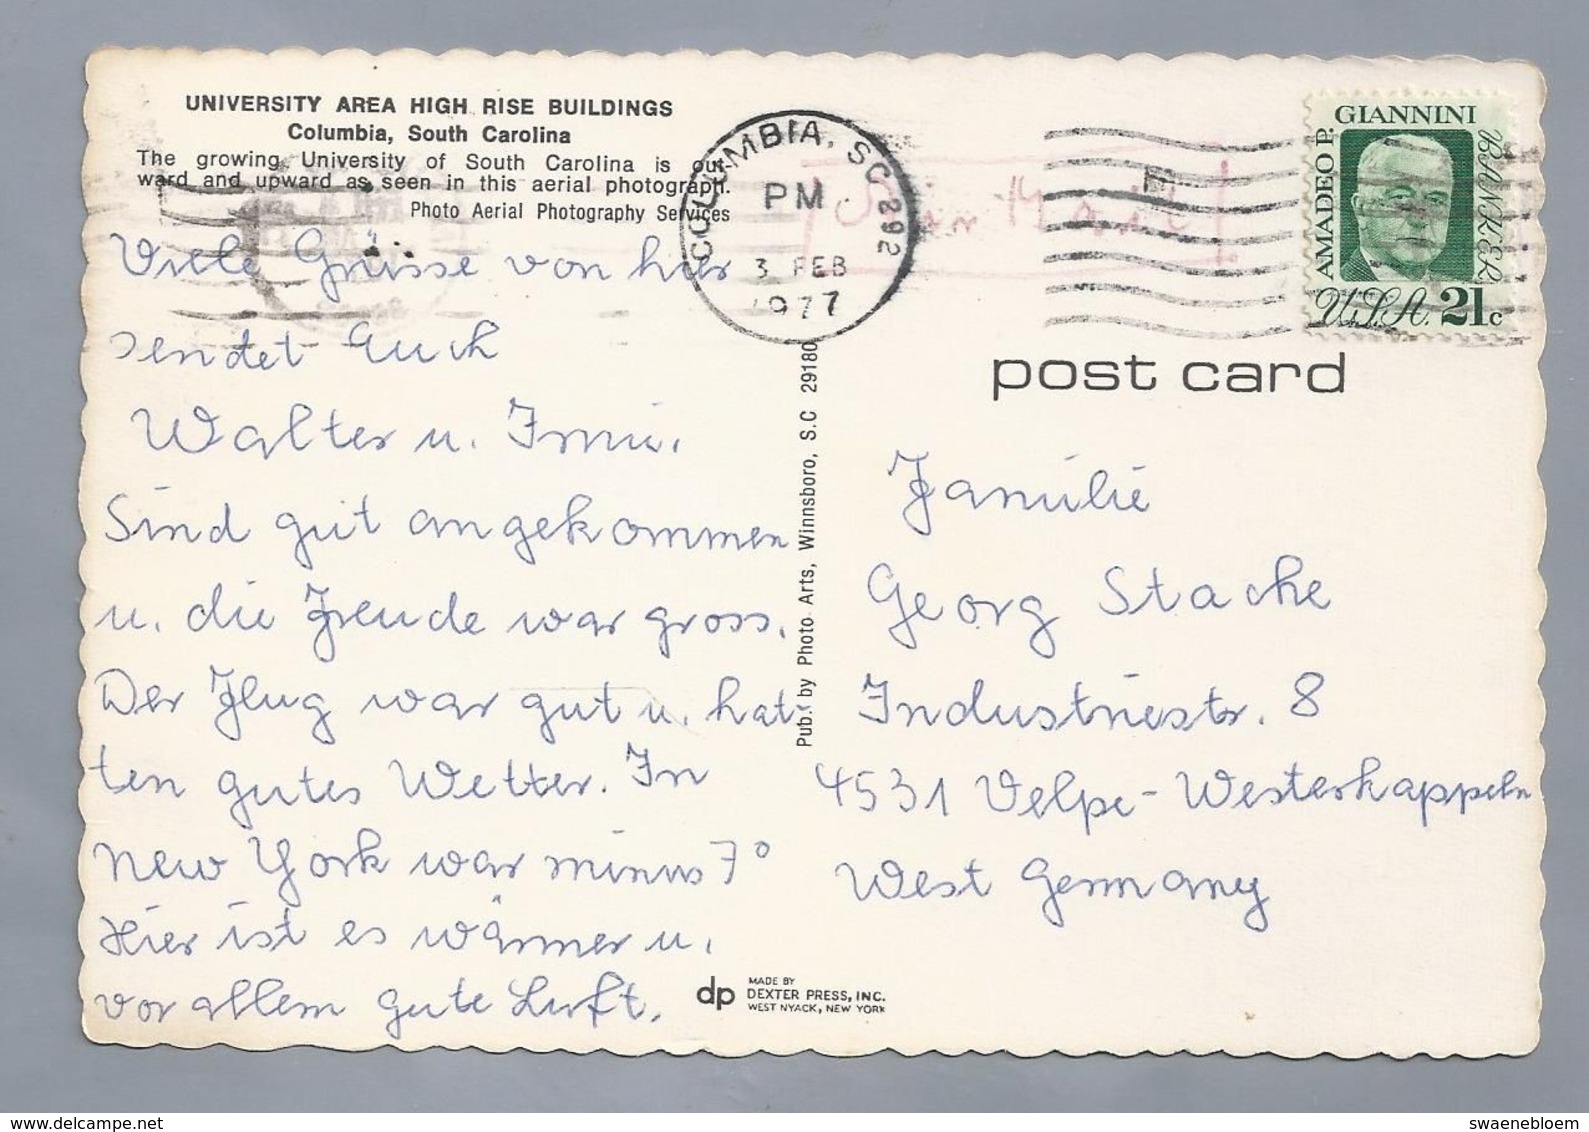 UNIVERSITY AREA HIGH RISE BUILDINGS
Columbia, South Carolina
The growing University of South Carolina is out-
ward and upward as seen in this aerial photograph.
Photo Aerial Photography Services
Viele Grüsse von hier
sendet Euch
Walter u. Irmi.
Sind gut angekommen
u. die Freude war gross.
Der Flug war gut u. hat-
ten gutes Wetter. In
New York war minus 7°
Hier ist es wärmer u.
vor allem gute Luft.
Pub. by Photo Arts, Winnsboro, S.C 29180
dp
MADE BY
DEXTER PRESS, INC.
WEST NYACK, NEW YORK
COLUMBIA, SC 292
PM
3 FEB
1977
Air Mail
AMADEO P.
GIANNINI
BANKER
U.S.A. 21c
post card
Familie
Georg Stacke
Industriestr. 8
4531 Velpe-Westerkappeln
West Germany
delcampe.net
swaenebloem